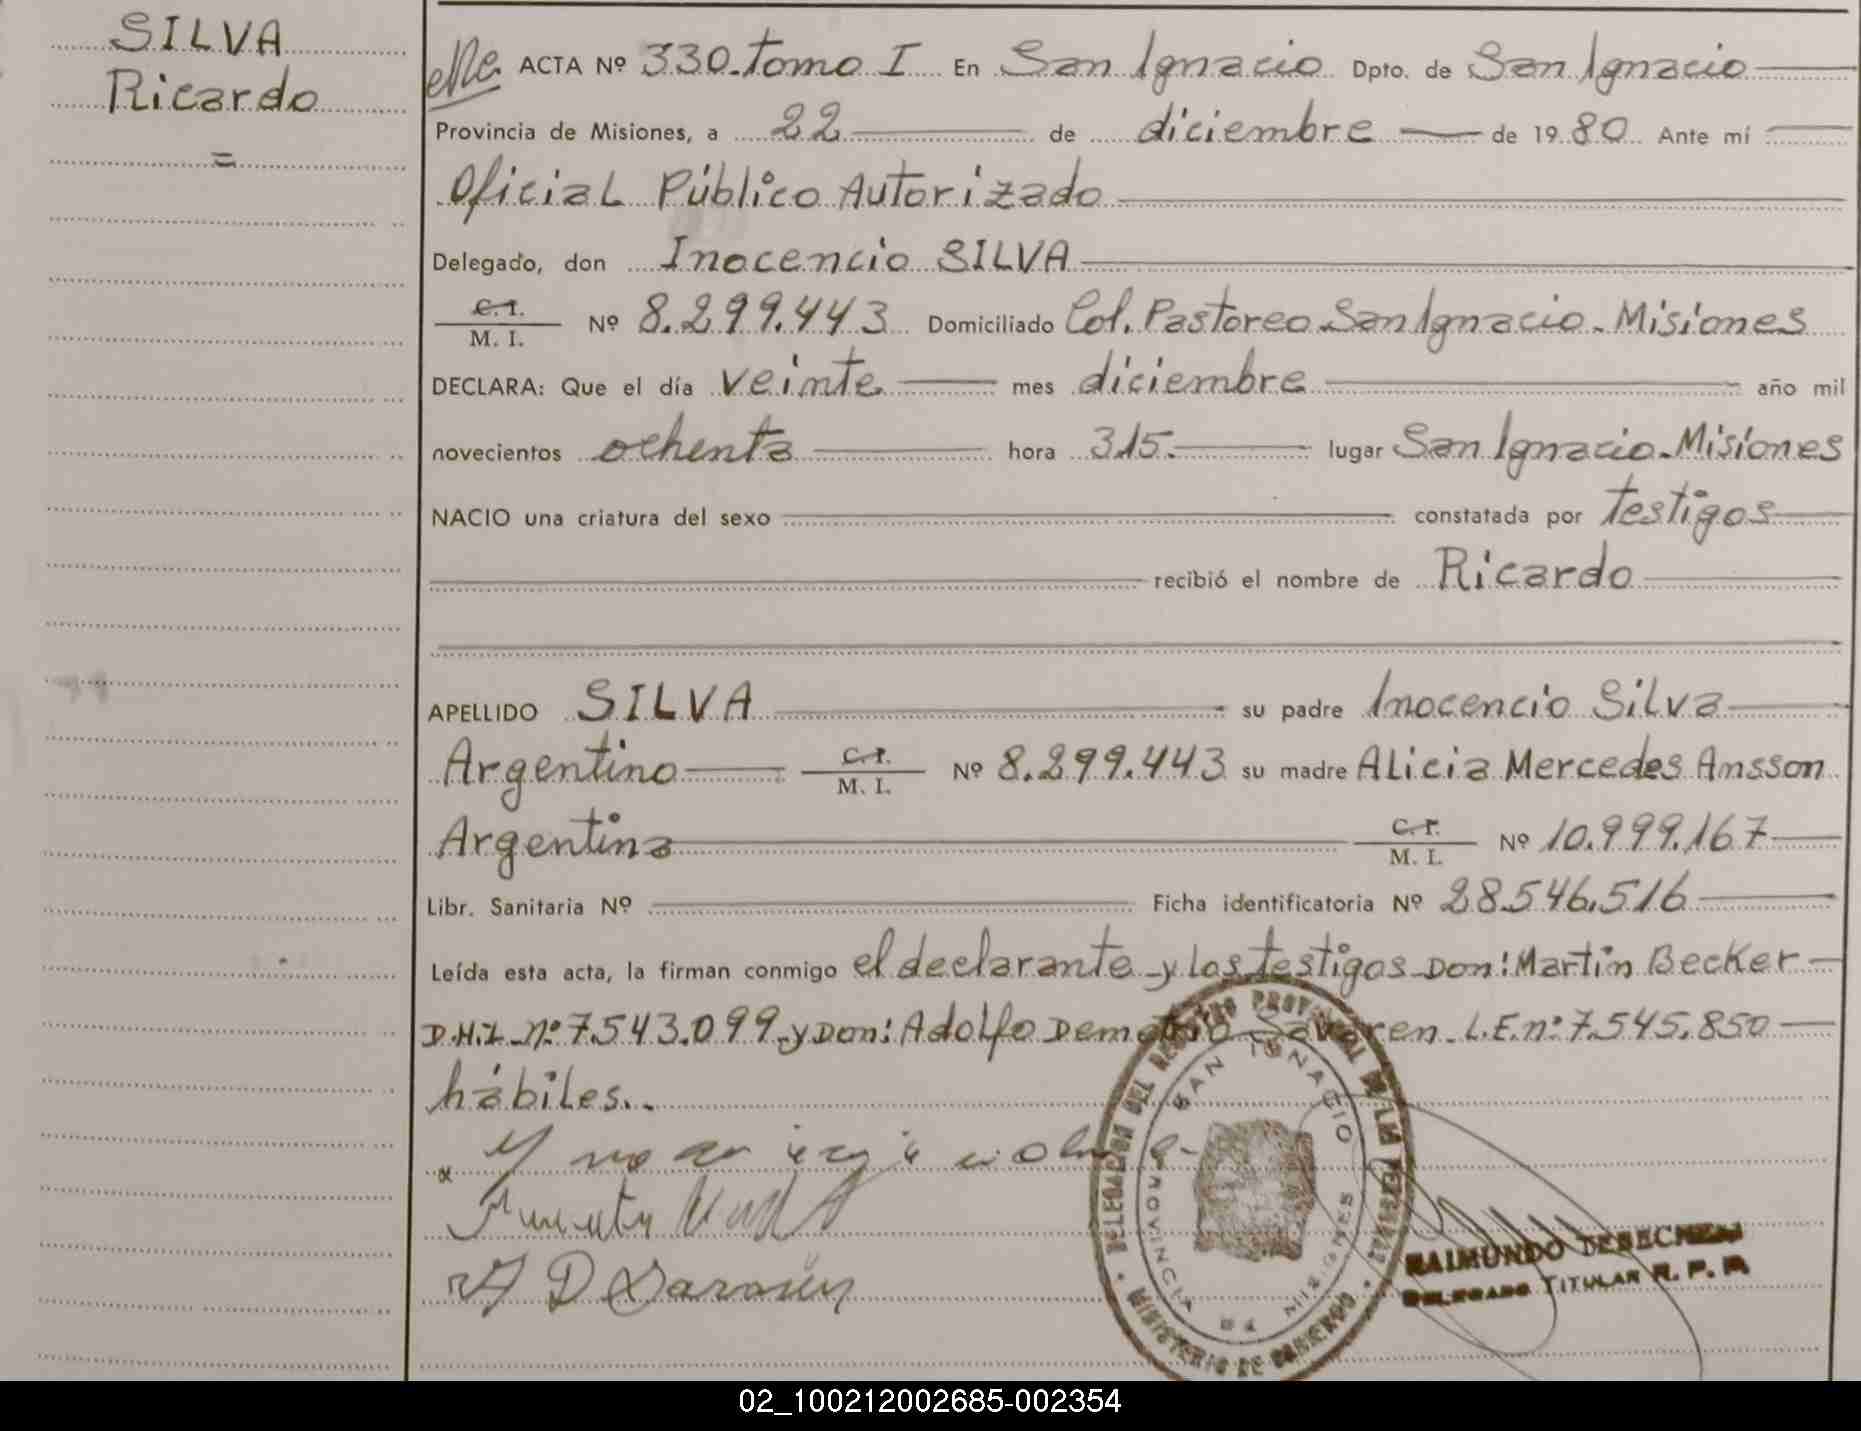 SILVA
Ricardo
=
ACTA Nº 330. Tomo I En San Ignacio Dpto. de San Ignacio
Provincia de Misiones, a 22 de diciembre de 1980 Ante mí
Oficial Público Autorizado
Delegado, don Inocencio SILVA
C.I.
M. I. Nº 8.299.443 Domiciliado Col. Pastoreo San Ignacio - Misiones
DECLARA: Que el día veinte mes diciembre año mil
novecientos ochenta hora 3.15. lugar San Ignacio - Misiones
NACIO una criatura del sexo constatada por testigos
recibió el nombre de Ricardo
APELLIDO SILVA su padre Inocencio Silva
Argentino C.I. M. I. Nº 8.299.443 su madre Alicia Mercedes Ansson
Argentina C.I. M. I. Nº 10.999.167
Libr. Sanitaria Nº Ficha identificatoria Nº 28.546.516
Leída esta acta, la firman conmigo el declarante y los testigos Don: Martin Becker
D.N.I. nº 7.543.099 y Don: Adolfo Demetrio L.E. nº: 7.545.850
hábiles..
DELEGACION DEL REGISTRO PROVINCIAL DE LAS PERSONAS
SAN IGNACIO
PROVINCIA DE MISIONES
MINISTERIO DE GOBIERNO
RAIMUNDO
DELEGADO TITULAR R. P. P.
02_100212002685-002354